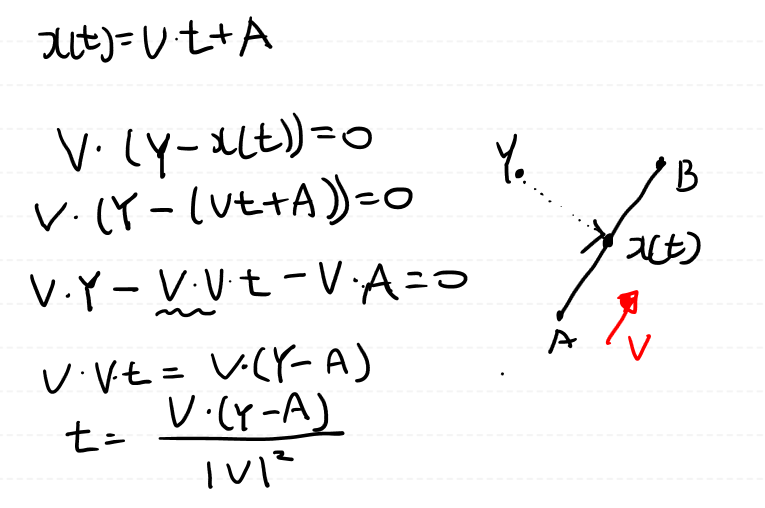 x(t)=V·t+A
V·(Y-x(t))=0
V·(Y-(Vt+A))=0
V·Y-V·V·t-V·A=0
V·V·t=V·(Y-A)
t=V·(Y-A)
|V|²
Y
B
x(t)
A
V